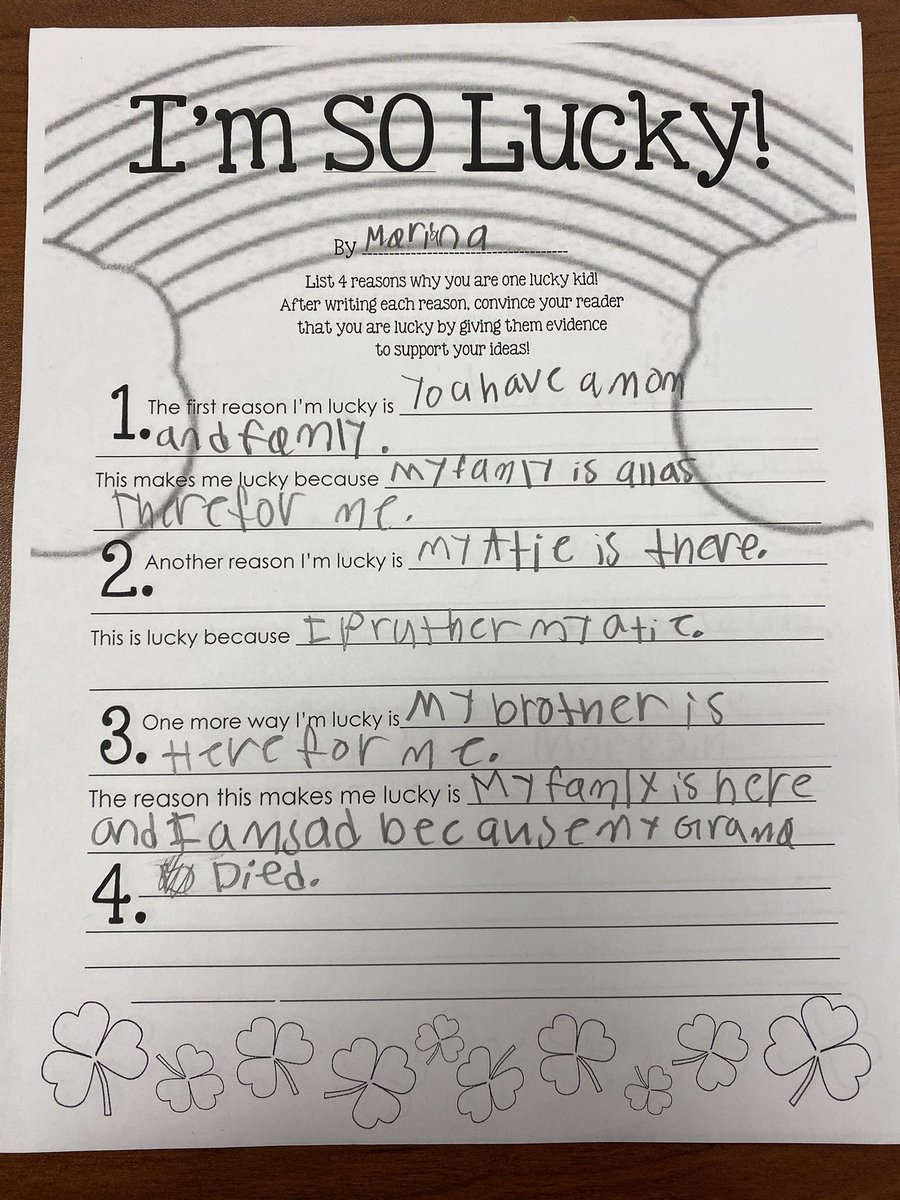 I'm SO Lucky!
By Marina
List 4 reasons why you are one lucky kid!
After writing each reason, convince your reader
that you are lucky by giving them evidence
to support your ideas!
1. The first reason I'm lucky is You have a mom
and famly.
This makes me lucky because My famly is allas
there for me.
2. Another reason I'm lucky is my Atie is there.
This is lucky because I pruther my atie.
3. One more way I'm lucky is My brother is
Here for me.
The reason this makes me lucky is My famly is here
and I am sad because my Grand
4. Died.